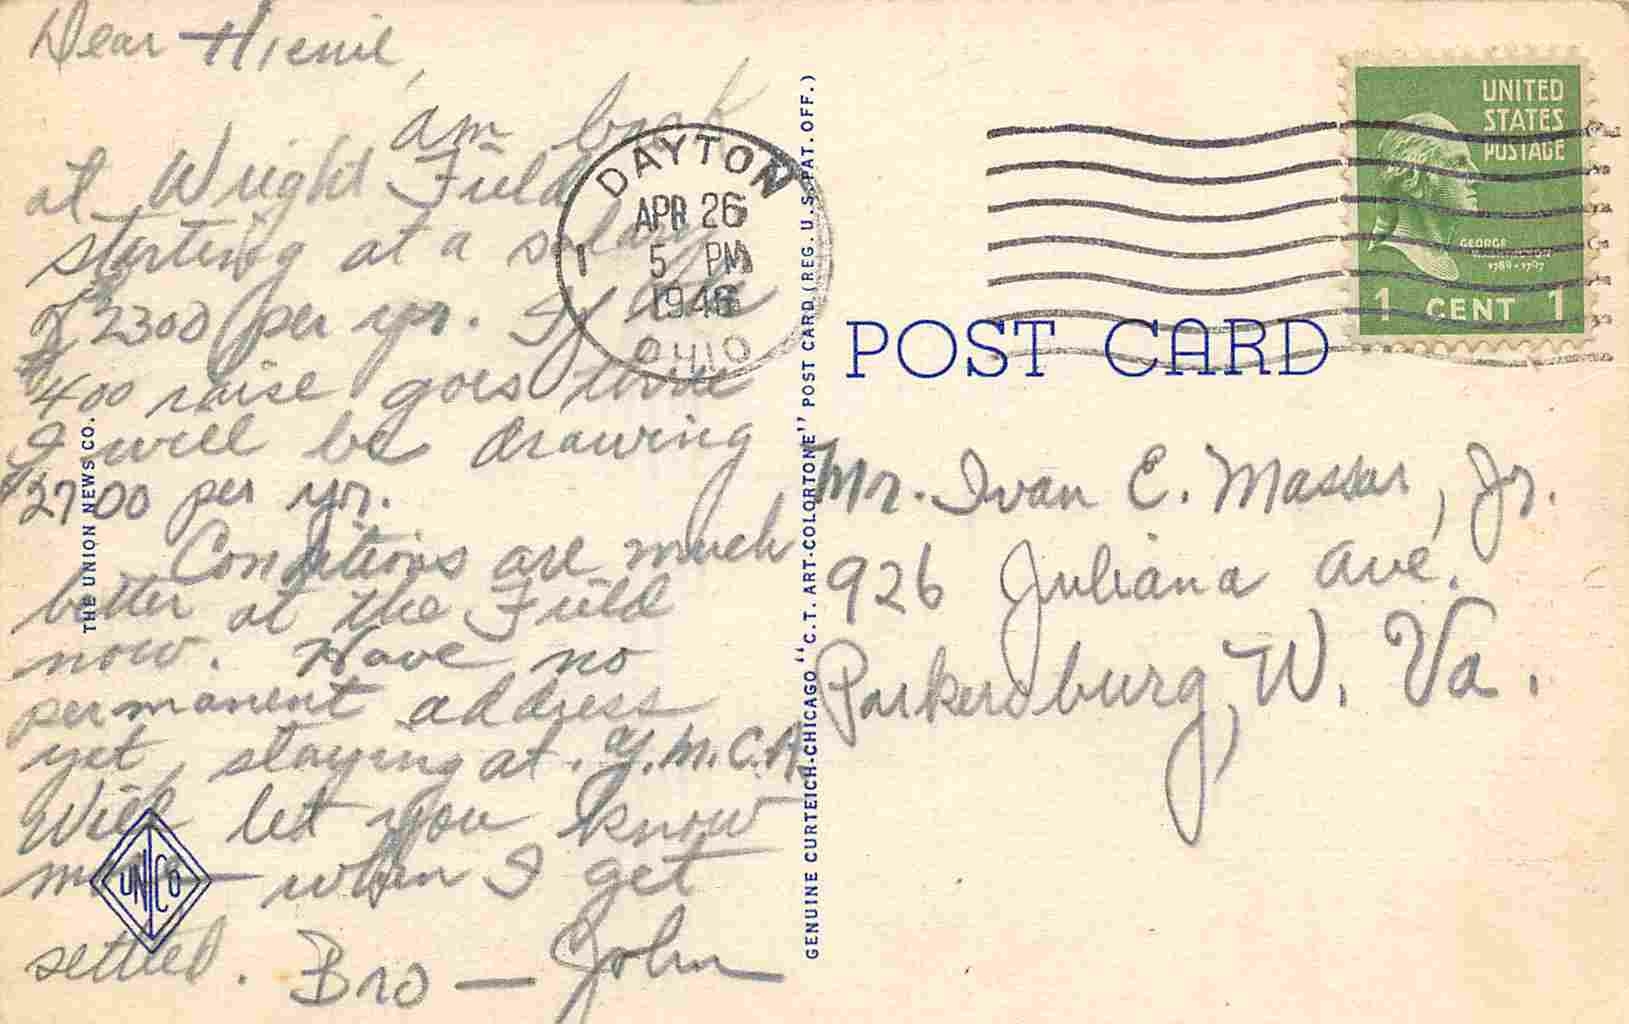 Dear
am back
at Wright Field
starting at a salary
of 2300 per yr. If the
$400 raise goes thru
I will be drawing
$2700 per yr.
Conditions are much
better at the Field
now. Have no
permanent address
yet, staying at Y.M.C.A.
Will let you know
more when I get
settled. Bro — John
THE UNION NEWS CO.
UNCO
DAYTON
APR 26
5 PM
1946
OHIO
1
GENUINE CURTEICH-CHICAGO "C.T. ART-COLORTONE" POST CARD (REG. U.S. PAT. OFF.)
POST CARD
UNITED
STATES
POSTAGE
GEORGE
WASHINGTON
1789-1797
1 CENT 1
Mr. Ivan E. Massar, Jr.
926 Juliana Ave.
Parkersburg, W. Va.